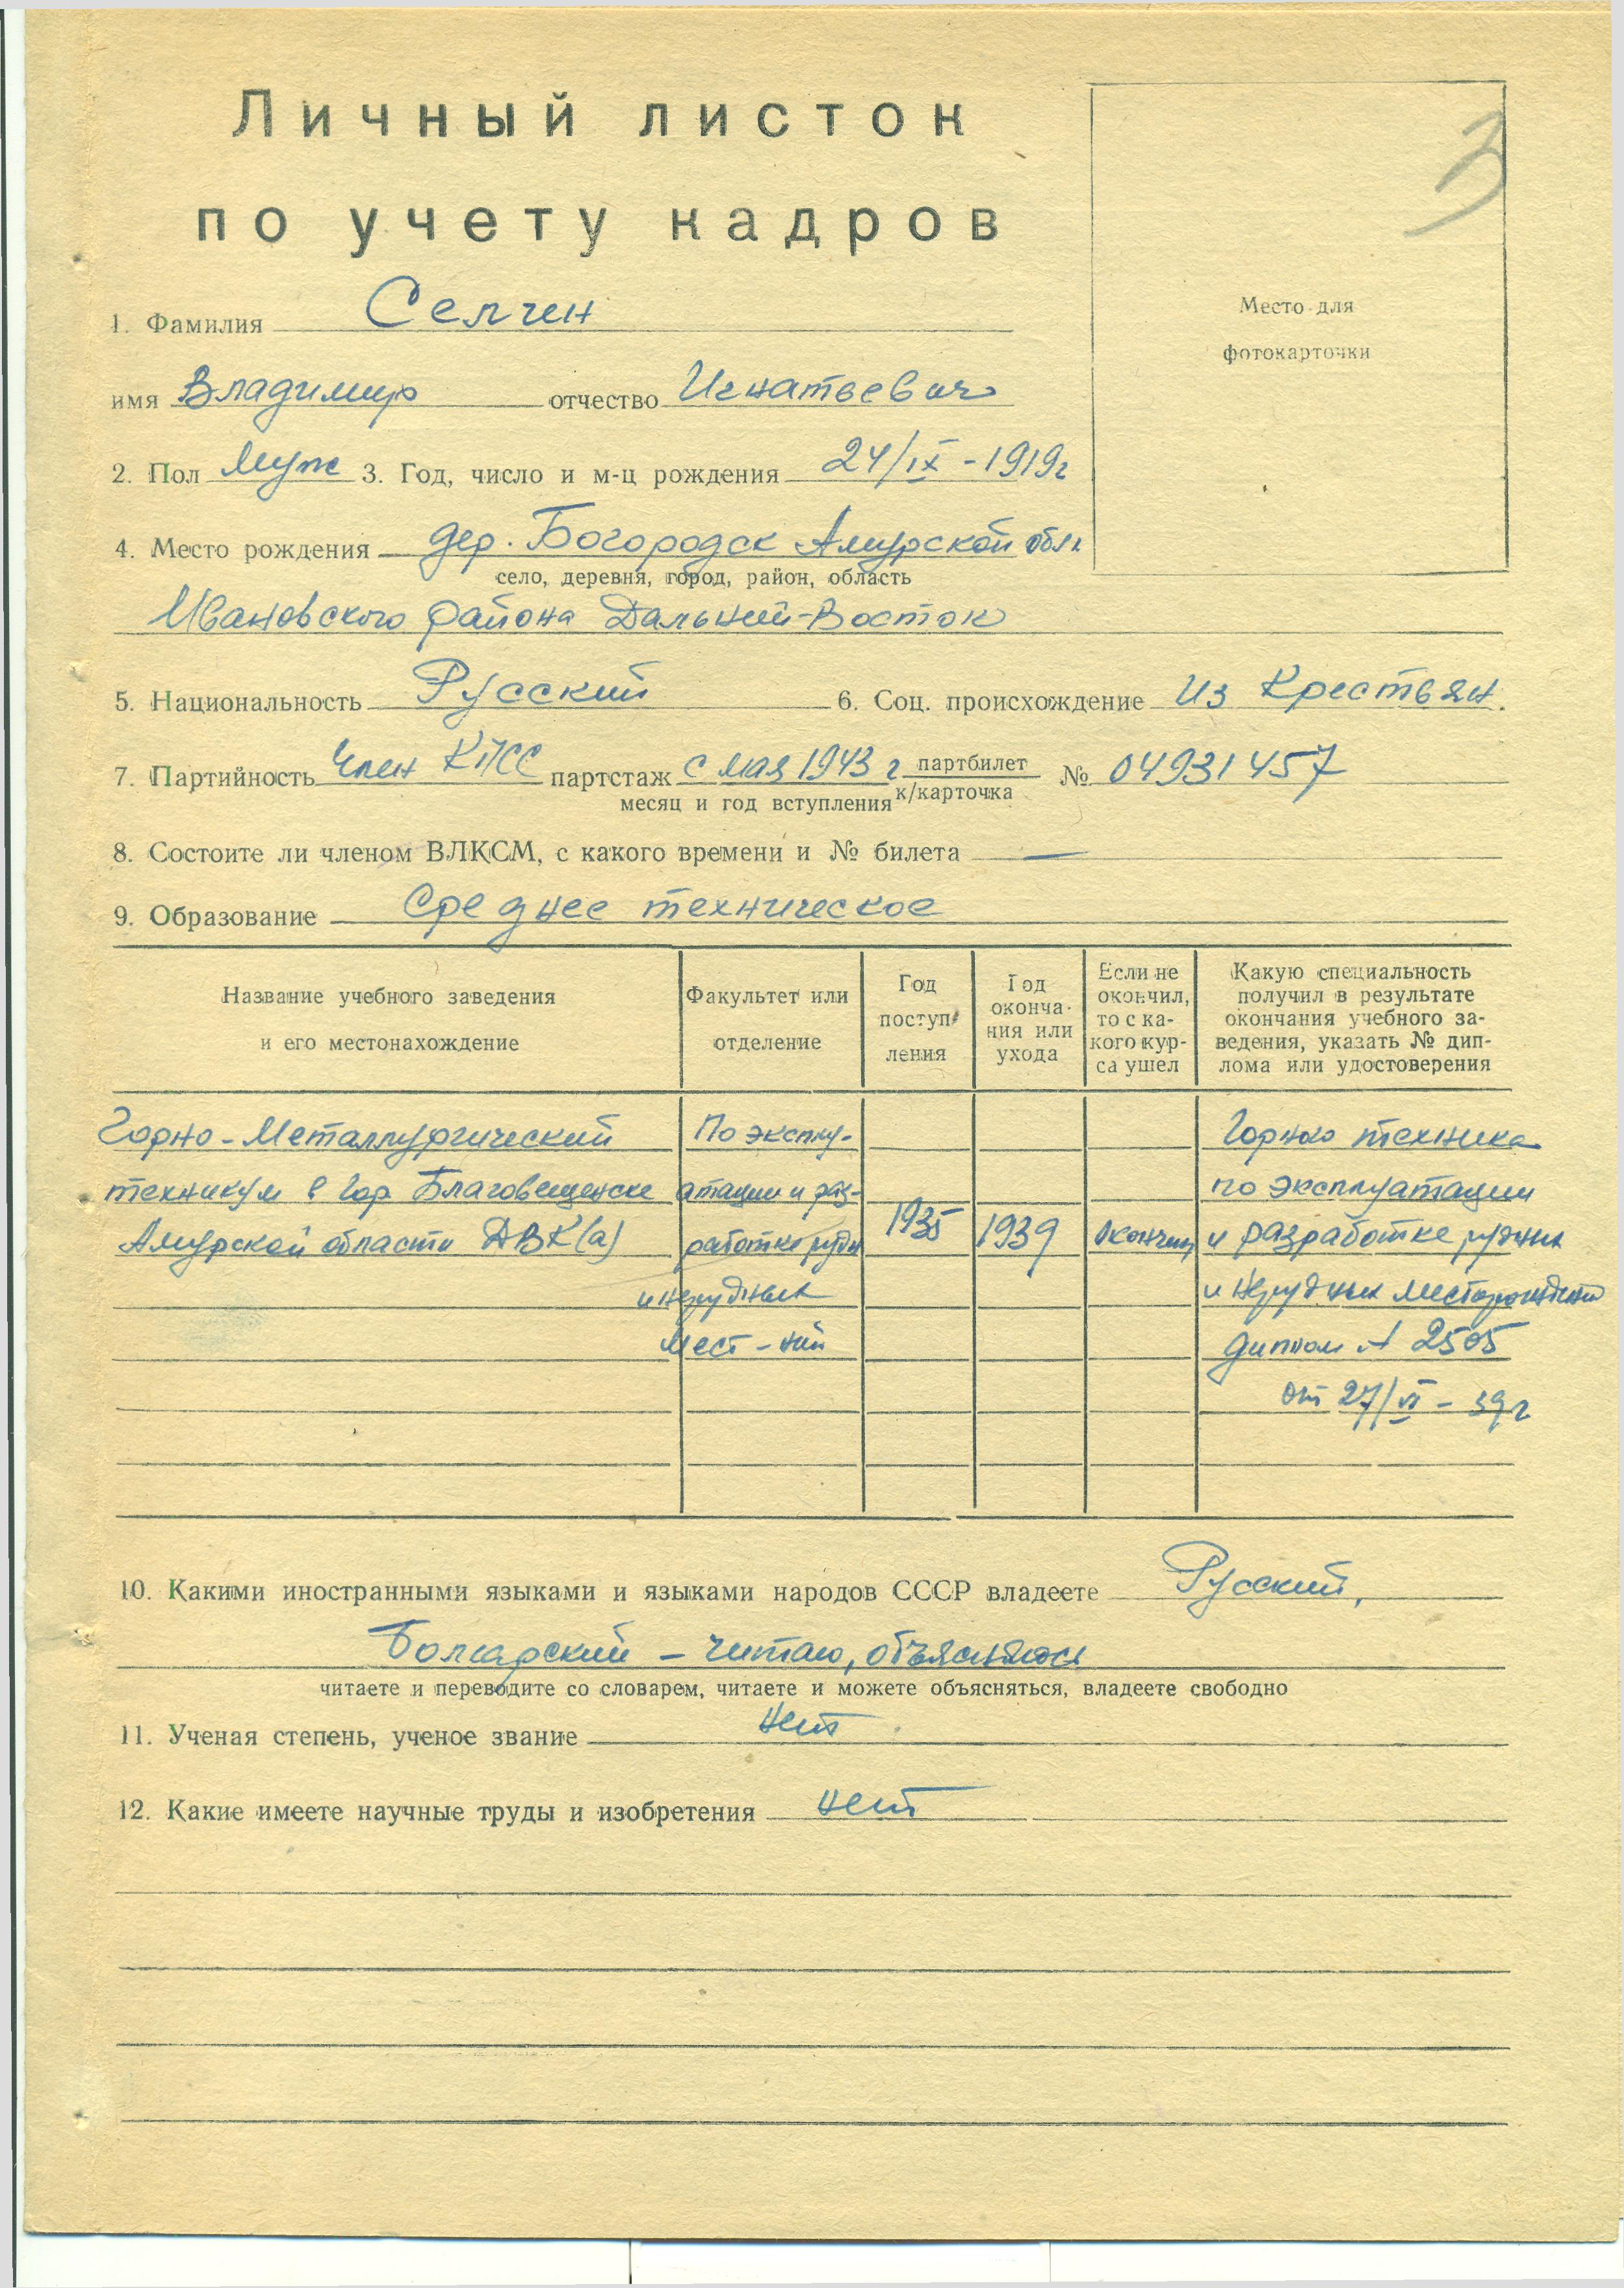 Личный листок
по учету кадров
3
Место для
фотокарточки
1. Фамилия Селчен
имя Владимир отчество Игнатьевич
2. Пол Муж 3. Год, число и м-ц рождения 24/IX - 1919 г
4. Место рождения дер. Богородск Амурской обл.
село, деревня, город, район, область
Ивановского района Дальний-Восток
5. Национальность Русский 6. Соц. происхождение Из Крестьян.
7. Партийность Член КПСС партстаж с мая 1943 г партбилет № 04931457
месяц и год вступления к/карточка
8. Состоите ли членом ВЛКСМ, с какого времени и № билета —
9. Образование Среднее техническое
Название учебного заведения
и его местонахождение
Факультет или
отделение
Год
поступ
ления
Год
оконча-
ния или
ухода
Если не
окончил,
то с ка-
кого кур-
са ушел
Какую специальность
получил в результате
окончания учебного за-
ведения, указать № дип-
лома или удостоверения
Горно-Металлургический
техникум в гор Благовещенске
Амурской области ДВК(а)
По эксплу-
атации и раз-
работке рудн
и нерудных
мест-ний
1935
1939
Окончил
Горного техника
по эксплуатации
и разработке рудных
и нерудных месторождений
диплом А 2505
от 27/VI - 39 г
10. Какими иностранными языками и языками народов СССР владеете Русский,
Болгарский - читаю, объясняюсь
читаете и переводите со словарем, читаете и можете объясняться, владеете свободно
11. Ученая степень, ученое звание нет
12. Какие имеете научные труды и изобретения нет